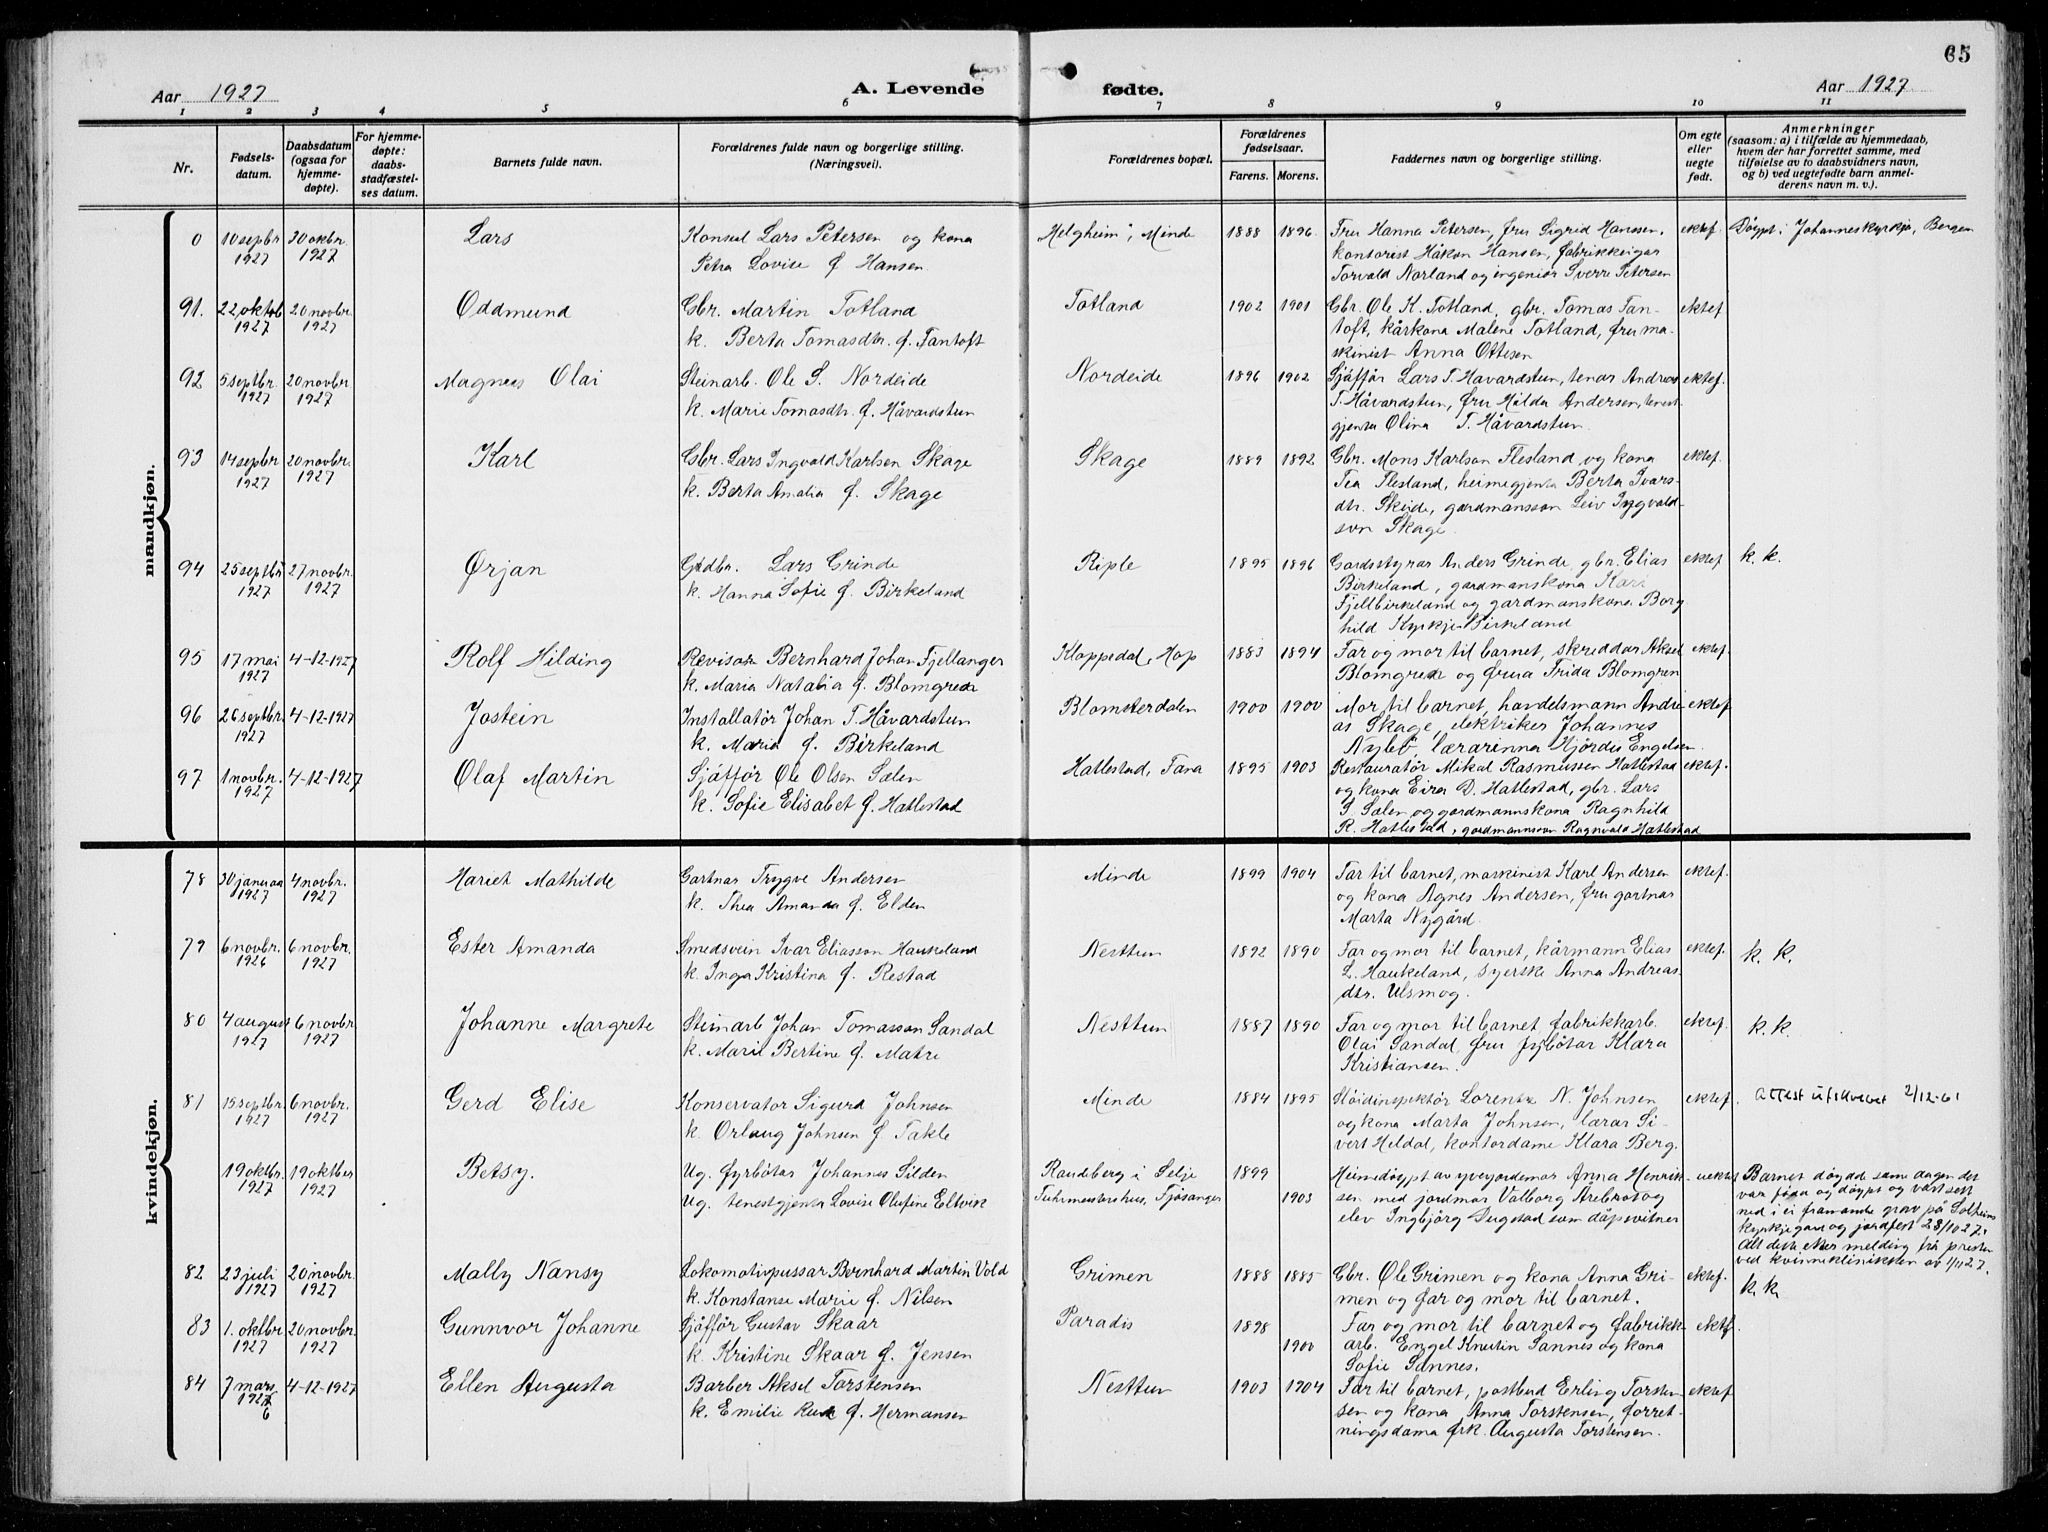 65
Aar 1927 A. Levende fødte. Aar 1927
1 2 3 4 5 6 7 8 9 10 11
Nr.
Fødsels-
datum.
Daabsdatum
(ogsaa for
hjemme-
døpte).
For hjemme-
døpte:
daabs-
stadfæstel-
ses datum.
Barnets fulde navn.
Forældrenes fulde navn og borgerlige stilling.
(Næringsvei).
Forældrenes bopæl.
Forældrenes
fødselsaar.
Farens. Morens.
Faddernes navn og borgerlige stilling.
Om egte
eller
uegte
født.
Anmerkninger
(saasom: a) i tilfælde av hjemmedaab,
hvem der har forrettet samme, med
tilføielse av to daabsvidners navn,
og b) ved uegtefødte barn anmel-
derens navn m. v.).
mandkjøn.
0 10 septbr 1927 30 oktbr. 1927 Lars
Konsul Lars Petersen og kona
Petra Lovise f. Hansen
Helgheim, Minde 1888 1896
Fru Hanna Petersen, fru Sigrid Hanssen,
kontorist Håkon Hansen, fabrikkeigar
Torvald Norland og ingeniør Sverr Petersen
ektef. Døypt i Johanneskyrkja, Bergen
91. 22 oktob 1927 20 novbr. 1927 Oddmund
Gbr. Martin Totland
k. Berta Tomasdtr. f. Fantoft
Totland 1902 1901
Gbr. Ole K. Totland, gbr. Tomas Fan-
toft, kårkona Malene Totland, fru ma-
skinist Anna Ottesen
ektef
92 5 septbr. 1927 20 novbr. 1927 Magnus Olai
Steinarb. Ole S. Nordeide
k. Marie Tomasdtr. f. Håvardstun
Nordeide 1896 1902
Sjåffør Lars T. Håvardstun, tenar Andreas
T. Håvardstun, fru Hilda Andersen, tenest-
gjenta Olina T. Håvardstun.
ektef.
93 14 septbr 1927 20 novbr. 1927 Karl
Gbr. Lars Ingvald Karlsen Skage
k. Berta Amalia f. Skage
Skage 1889 1892
Gbr. Mons Karlson Flesland og kona
Tea Flesland, heimegjenta Berta Ivars-
dtr. Skeide, gardmansson Leiv Ingvald-
son Skage.
ektef.
94 25 septbr 1927 27 novbr. 1927 Ørjan
Gardbr. Lars Grinde
k. Hanna Sofie f. Birkeland
Riple 1895 1896
Gardsstyrar Anders Grinde, gbr. Elias
Birkeland, gardmanskona Kari
Fjellbirkeland og gardmanskona Borg
hild Kyrkje-Birkeland
ektef k. k.
95 17 mai 1927 4-12-1927 Rolf Hilding
Revisor Bernhard Johan Fjellanger
k. Maria Natalia f. Blomgren
Kloppedal, Hop 1883 1894
Far og mor til barnet, skreddar Aksel
Blomgren og frua Frida Blomgren
ektef.
96 26 septbr. 1927 4-12-1927 Jostein
Installatør Johan T. Håvardstun
k. Maria f. Birkeland
Blomsterdalen 1900 1900
Mor til barnet, handelsmann Andre-
as Skage, elektriker Johannes
Nybø, lærarinna Hjördis Engelsen.
ektef
97 1 novbr. 1927 4-12-1927 Olaf Martin
Sjåffør Ole Olsen Sælen
k. Sofie Elisabet f. Hatlestad
Hatlestad, Fana 1895 1903
Restauratør Mikal Rasmussen Hatlestad
og kona Eira D. Hatlestad, gbr. Lars
S. Sælen og gardmannskona Ragnhild
R. Hatlestad, gardmannson Ragnvald Hatlestad
ektef.
kvindekjøn.
78 30 januar 1927 4 novbr. 1927 Hariet Mathilde
Gartnar Trygve Andersen
k. Thea Amanda f. Elden
Minde 1899 1904
Far til barnet, maskinist Karl Andersen
og kona Agnes Andersen, fru gartnar
Marta Nygård.
ektef.
79 6 novbr. 1926 6 novbr. 1927 Ester Amanda
Smedsvein Ivar Eliasson Haukeland
k. Inga Kristina f. Restad
Nesttun 1892 1890
Far og mor til barnet, kårmann Elias
L. Haukeland, syerske Anna Andreas-
dtr. Ulsmåg.
ektef. k. k.
80 4 august 1927 6 novbr. 1927 Johanne Margrete
Steinarb Johan Tomasson Sandal
k. Marie Bertine f. Matre
Nesttun 1887 1890
Far og mor til barnet, fabrikkarb.
Olai Sandal, fru fyrbøtar Klara
Kristiansen.
ektef. k. k.
81 15 septbr. 1927 6 novbr. 1927 Gerd Elise
Konservator Sigurd Johnsen
k. Orlaug Johnsen f. Takle
Minde 1884 1895
Skidinspektør Lorentz N. Johnsen
og kona Marta Johnsen, lærar Si-
vert Heldal, kontordame Klara Berg.
ektef. Attest utskrevet 2/12-61
19 oktbr. 1927 19 oktber 1927 Betsy.
Ug. fyrbøtar Johannes Silden
Ug. tenestgjenta Lovise Olufine Eltvik
Raudeberg i Selje
Fuhrmesterhus, Fjøsanger
1899 1903
Heimedøypt av yverjordmor Anna Henrik-
sen med jordmor Valborg Årebrot og
elev Ingbjörg Dugstad som dåpsvitner
uektef
Barnet døydd same dagen det
var född og døypt og vart sett
ned i ei framande grav på Solheim
kyrkjegard og jordfest 28/10 27.
Alt dette etter melding frå presten
ved kvinneklinikken av 1/11 27.
82 23 juli 1927 20 novbr. 1927 Mally Nansy
Lokomotivpussar Bernhard Martin Vold
k. Konstanse Marie f. Nilsen
Grimen 1888 1885
Gbr. Ole Grimen og kona Anna Gri-
men og far og mor til barnet.
ektef. k. k
83 1. oktbr 1927 20 novbr. 1927 Gunnvor Johanne
Sjåffør Gustav Skaar
k. Kristine Skaar f. Jensen
Paradis 1898 1900
Far og mor til barnet og fabrikk-
arb. Engel Knutin Sannes og kona
Sofie Sannes.
ektef.
84 7 mars 1927 6 4-12-1927 Ellen Augusta
Barber Aksel Torstensen
k. Emilie f. Hermansen
Nesttun 1903 1904
Far til barnet, postbud Erling Torsten
sen og kona Anna Torstensen, forret-
ningsdama frk. Augusta Torstensen.
ektef